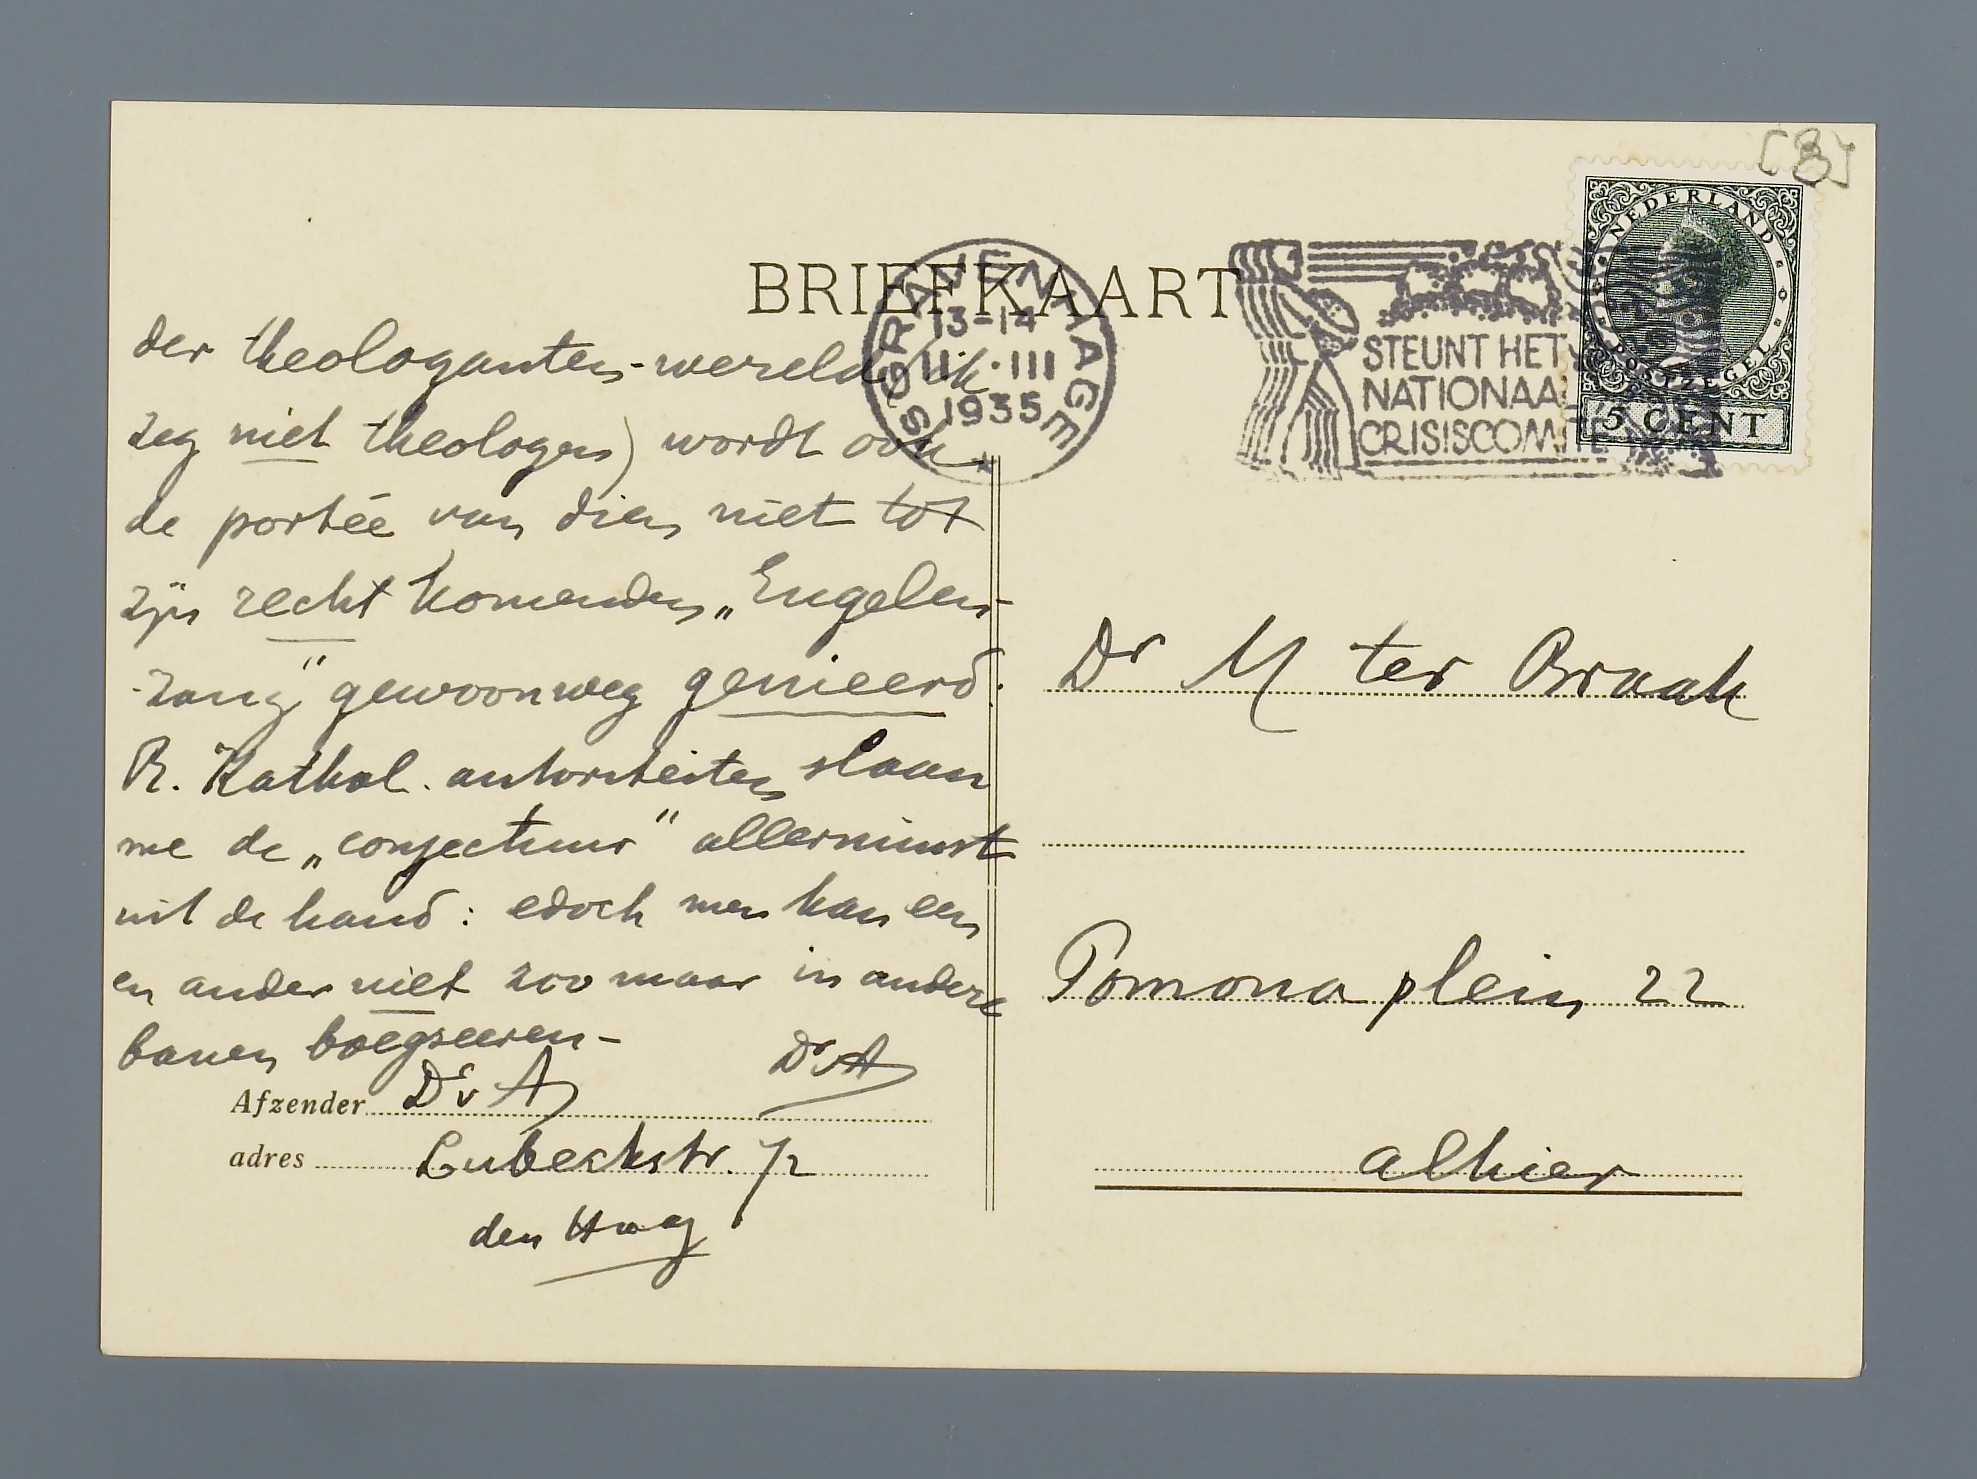 [8]
NEDERLAND
POSTZEGEL
5 CENT
BRIEFKAART
'S GRAVENHAGE
13-14
11.III
1935
STEUNT HET
NATIONAA
CRISISCOMITE
der theologanten-wereld (ik
zeg niet theologen) wordt ook
de portée van dien niet tot
zijn recht komenden „Engelen-
-zang" gewoonweg genieerd.
R. Kathol. autoriteiten slaan
me de „conjectuur" allerminst
uit de hand: edoch men kan een
en ander niet zoo maar in andere
banen boegseeren-
DvA
Afzender DvA
adres Lubeckstr. 72
den Haag
Dr M ter Braak
Pomona plein 22
alhier